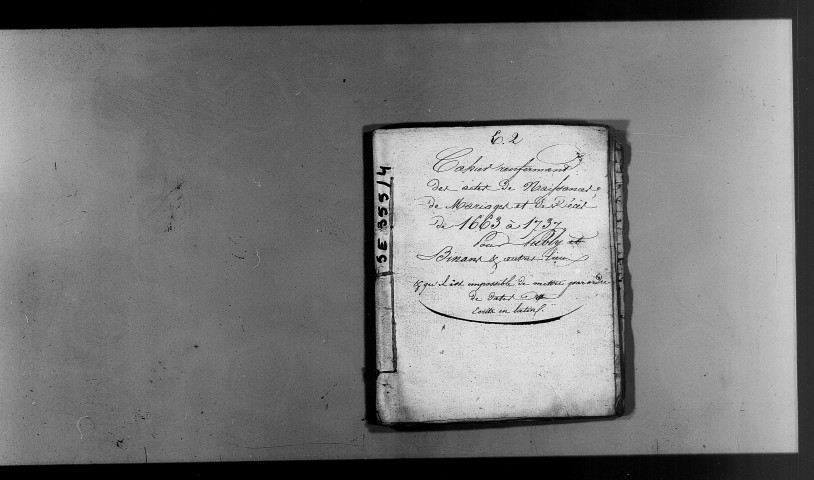 E. 2
Cahier renfermant
des actes de Naissances,
de Mariages et de Décès
de 1663 à 1737
Pour Publy et
Binans & autres lieux
& qu'il est impossible de mettre par ordre
de dates
écrits en latin.
5E 355/4